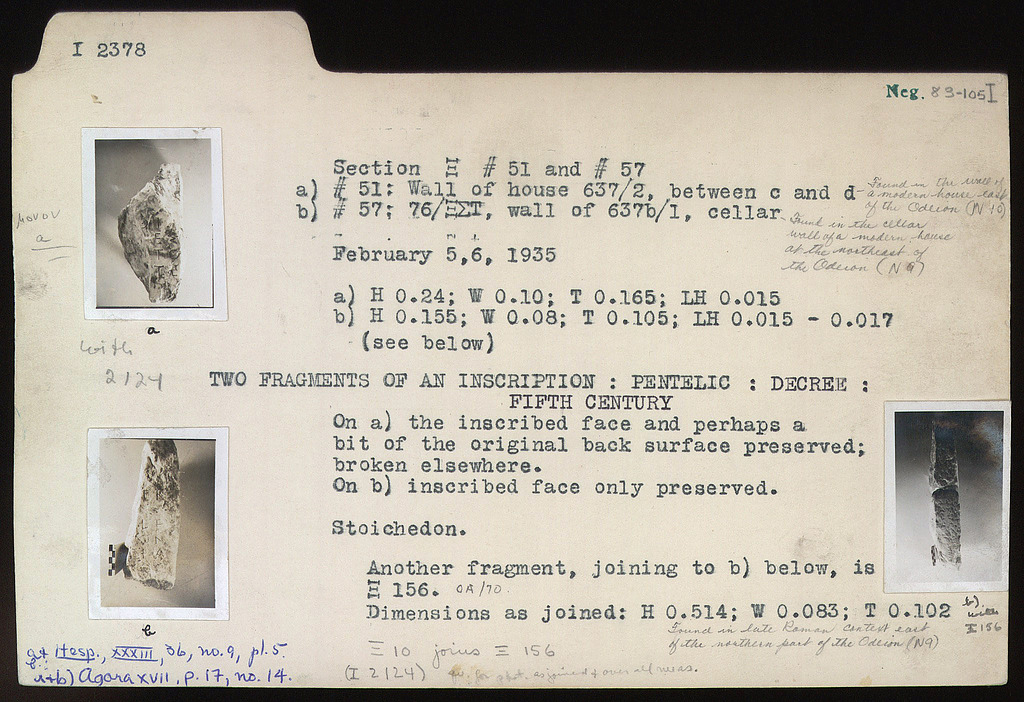 I 2378
Neg. 83-105 I
Section Ξ # 51 and # 57
a) # 51: Wall of house 637/2, between c and d-
Found in the wall of
a modern house east
of the Odeion (N 10)
b) # 57; 76/ΞΣΤ, wall of 637b/1, cellar
Found in the cellar
wall of a modern house
at the northeast of
the Odeion (N 9)
February 5,6, 1935
μονον
a
a) H 0.24; W 0.10; T 0.165; LH 0.015
b) H 0.155; W 0.08; T 0.105; LH 0.015 - 0.017
(see below)
a
with
2124
TWO FRAGMENTS OF AN INSCRIPTION : PENTELIC : DECREE :
FIFTH CENTURY
On a) the inscribed face and perhaps a
bit of the original back surface preserved;
broken elsewhere.
On b) inscribed face only preserved.
Stoichedon.
Another fragment, joining to b) below, is
Ξ 156. OA/70
Dimensions as joined: H 0.514; W 0.083; T 0.102
b)
with
Ξ 156
Found in late Roman context east
of the northern part of the Odeion (N9)
b
Ξ 10 joins Ξ 156
(I 2124) for phot. as joined & over all meas.
Hesp., XXXIII, 36, no. 9, pl. 5
a+b) Agora XVII, p. 17, no. 14.